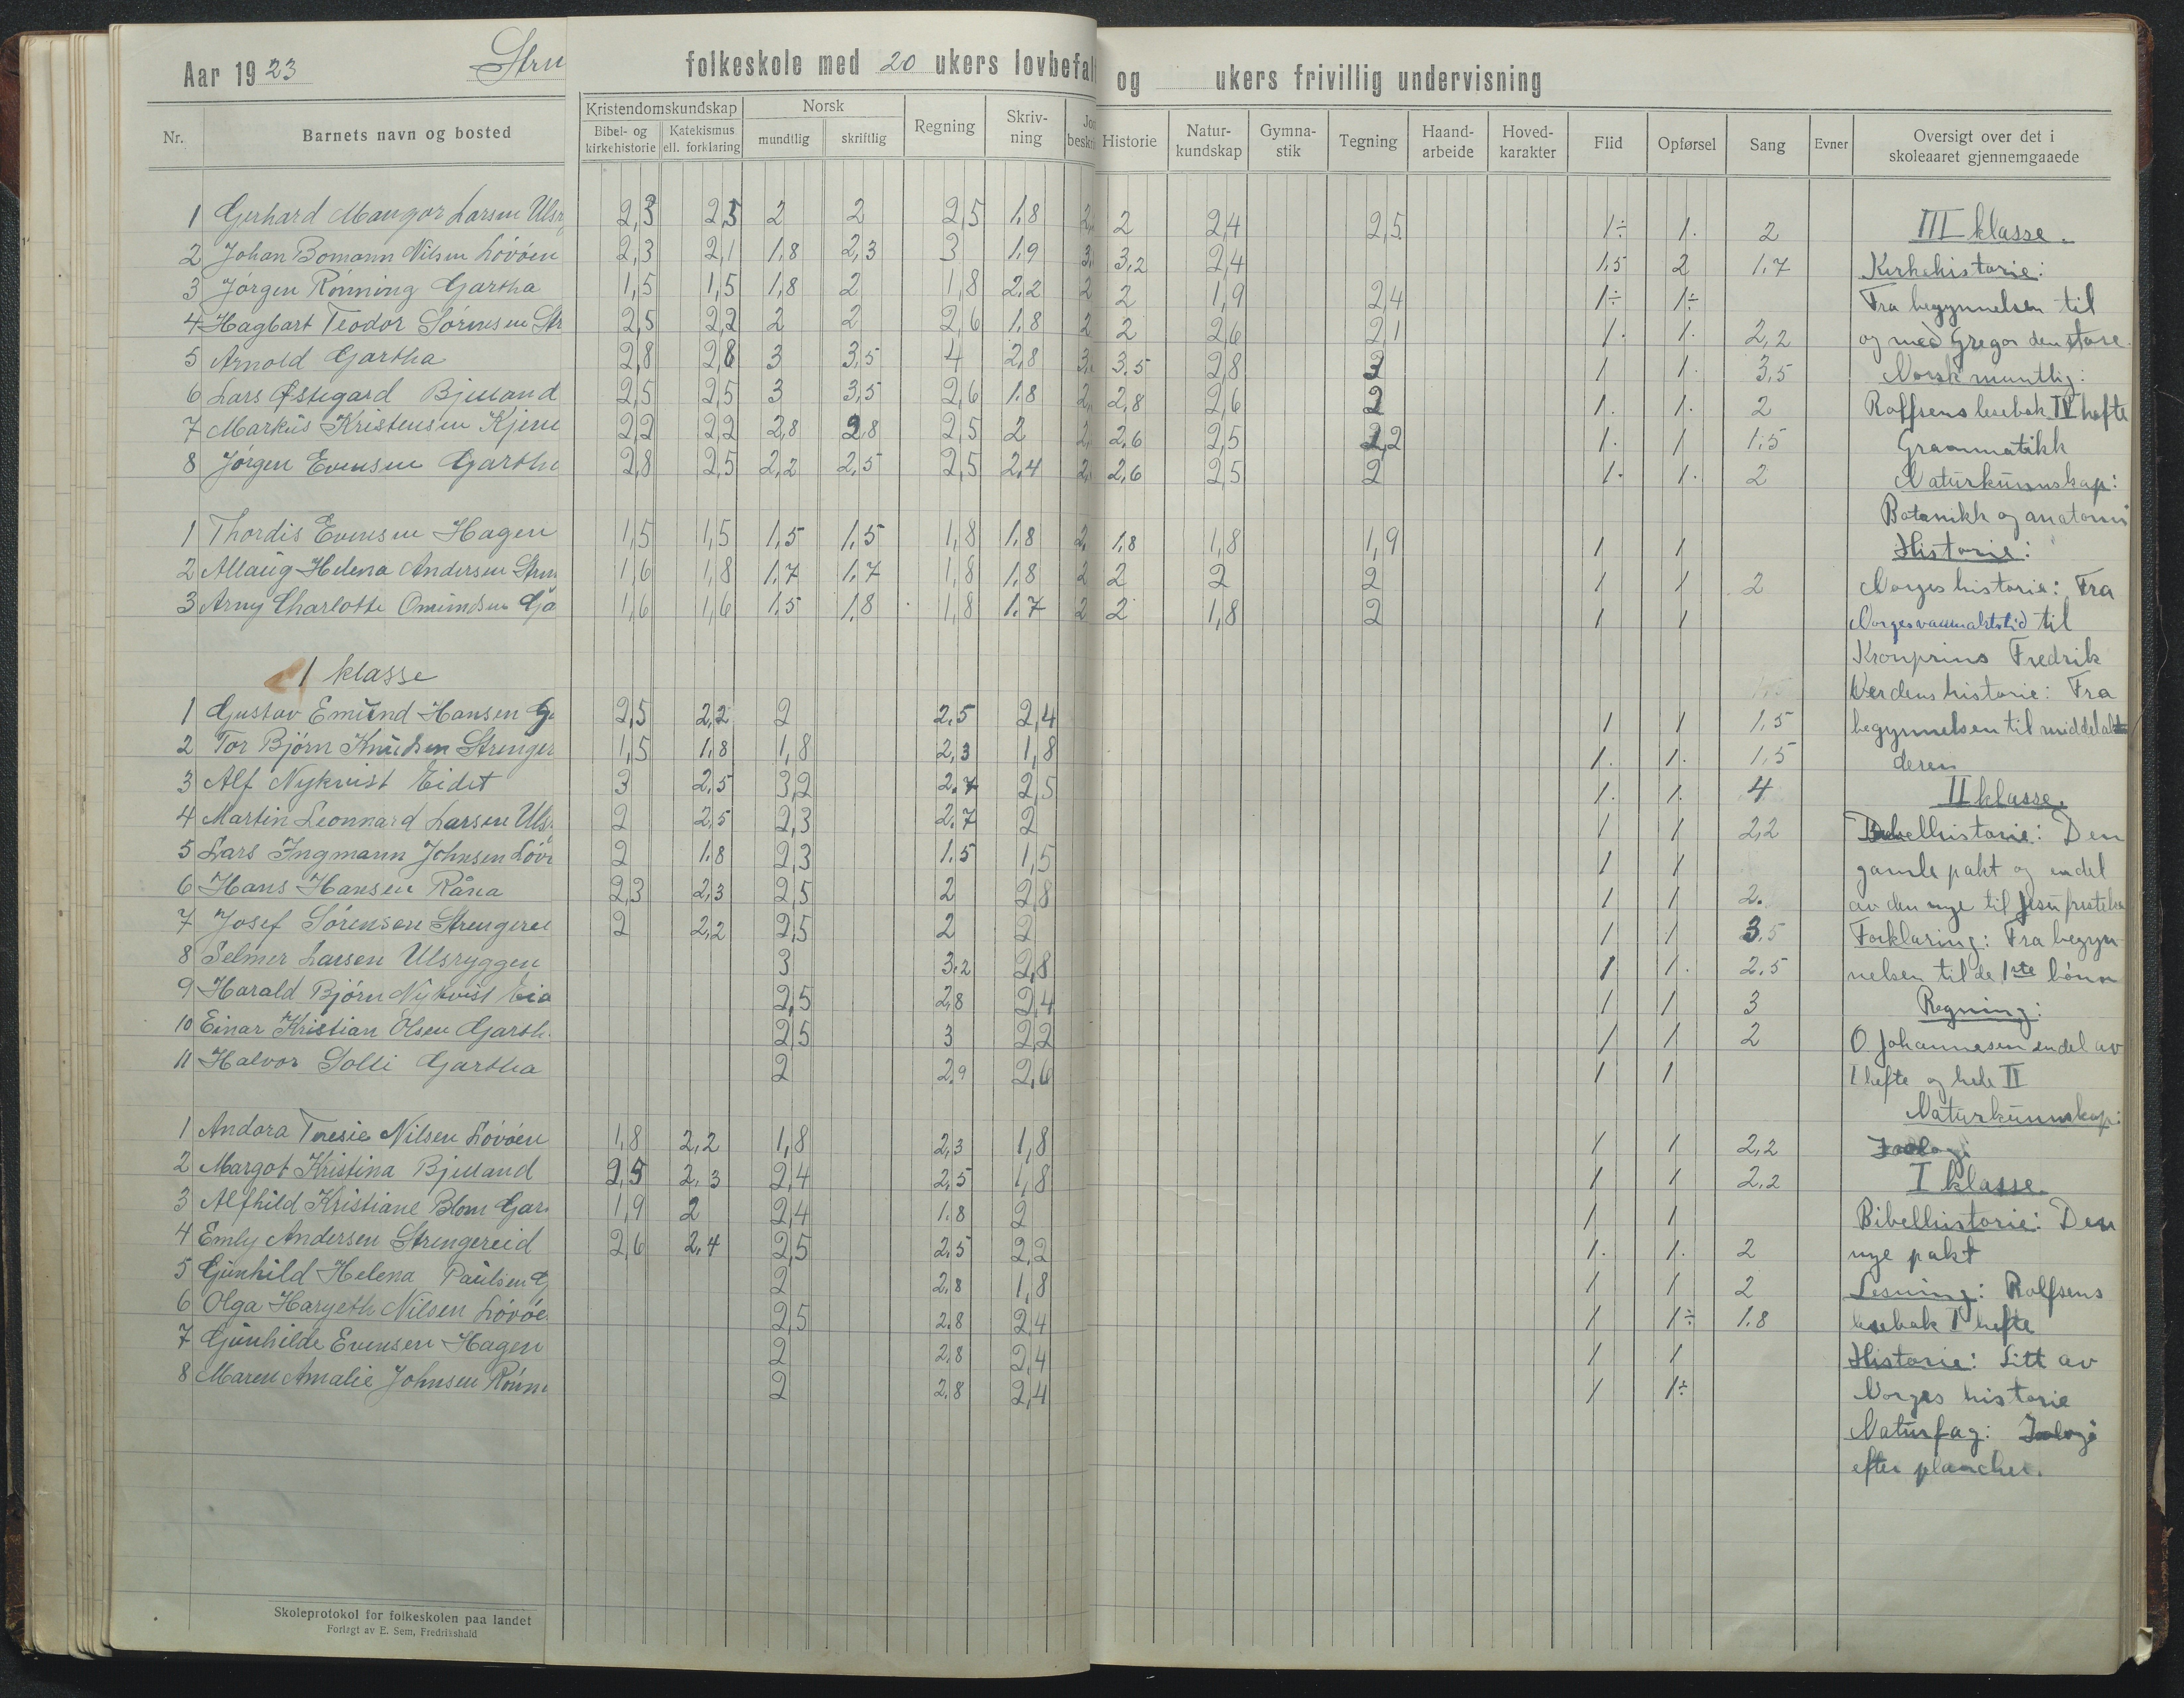 Aar 1923 Stru folkeskole med 20 ukers lovbefal og ukers frivillig undervisning
Nr. Barnets navn og bosted Kristendomskundskap Bibel- og kirkehistorie Katekismus ell. forklaring Norsk mundtlig skriftlig Regning Skriv-ning Jor beskri Historie Natur-kundskap Gymna-stik Tegning Haand-arbeide Hoved-karakter Flid Opførsel Sang Evner Oversigt over det i skoleaaret gjennemgaaede
1 Gerhard Mangor Larsen Ulsr 2,3 2,5 2 2 2,5 1,8 2, 2 2,4 2,5 1÷ 1. 2
2 Johan Bomann Nilsen Lövöen 2,3 2,1 1,8 2,3 3 1,9 3, 3,2 2,4 1.5 2 1.7
3 Jörgen Rönning Gartha 1,5 1,5 1,8 2 1,8 2,2 2 2 1,9 2,4 1÷ 1÷
4 Hagbart Teodor Sörensen Str 2,5 2,2 2 2 2,6 1.8 2 2 2,6 2,1 1. 1. 2,2
5 Arnold Gartha 2,8 2,8 3 3,5 4 2,8 3, 3.5 2,8 3 1 1. 3,5
6 Lars Østegard Bjelland 2,5 2,5 3 3,5 2,6 1.8 2, 2,8 2,6 2 1. 1. 2
7 Markus Kristensen Kjenn 2,2 2,2 2,8 2,8 2,5 2 2, 2.6 2,5 2,2 1. 1 1.5
8 Jörgen Evensen Gartha 2,8 2,5 2,2 2,5 2,5 2,4 2, 2,6 2,5 2 1. 1. 2
1 Thordis Evensen Hagen 1,5 1,5 1,5 1,5 1,8 1.8 2, 1.8 1,8 1,9 1 1
2 Allaug Helena Andersen Stren 1,6 1,8 1.7 1.7 1,8 1.8 2 2 2 2 1 1 2
3 Arny Charlotte Omundsen Ga 1,6 1,6 1.5 1.8 1,8 1.7 2 2 1,8 2 1 1
1 klasse
1 Gustav Emund Hansen G 2,5 2,2 2 2.5 2,4 1 1 1.5
2 Tor Björn Knudsen Strenger 1,5 1.8 1,8 2,3 1,8 1. 1. 1,5
3 Alf Nykvist Eidet 3 2.5 3,2 2.7 2,5 1. 1. 4
4 Martin Leonnard Larsen Uls 2 2,5 2,3 2.7 2 1 1 2,2
5 Lars Ingmann Johnsen Löv 2 1.8 2,3 1.5 1,5 1 1
6 Hans Hansen Råna 2,3 2,3 2,5 2 2,8 1 1 2.
7 Josef Sörensen Strengerei 2 2,2 2,5 2 2 1 1 3,5
8 Selmer Larsen Ulsryggen 3 3.2 2,8 1 1. 2.5
9 Harald Björn Nykvist Eid 2,5 2,8 2,4 1 1 3
10 Einar Kristian Olsen Garth. 2,5 3 2,2 1 1 2
11 Halvor Solli Gartha 2 2.9 2,6 1 1
1 Andora Teresie Nilsen Lövöen 1,8 2,2 1,8 2,3 1,8 1 1 2,2
2 Margot Kristina Bjelland 2,5 2,3 2,4 2,5 1,8 1 1 2,2
3 Alfhild Kristiane Blom Gar 1,9 2 2,4 1.8 2 1 1
4 Emly Andersen Strengereid 2,6 2,4 2,5 2.5 2,2 1. 1. 2
5 Gunhild Helena Paulsen G 2 2.8 1,8 1 1 2
6 Olga Hargeth Nilsen Lövöe 2,5 2.8 2,4 1 1÷ 1.8
7 Gunhilde Evensen Hagen 2 2,8 2,4 1 1
8 Maren Amalie Johnsen Rönn 2 2.8 2,4 1 1÷
III klasse.
Kirkehistorie:
Fra begynnelsen til
og med Gregor den store.
Norsk muntlig:
Rolfsens lesebok IV hefte
Grammatikk
Naturkunnskap:
Botanikk og anatomi
Historie:
Norges historie: Fra
Norges vanmaktstid til
Kronprins Fredrik
Verdens historie: Fra
begynnelsen til middelal
deren
II klasse.
Bibelhistorie: Den
gamle pakt og endel
av den nye til Jesu fristelse
Forklaring: Fra begyn
nelsen til de 1ste bönn
Regning:
O. Johannesen endel av
I hefte og hele II
Naturkunnskap:
Zoologi
I klasse.
Bibelhistorie: Den
nye pakt
Lesning: Rolfsens
lesebok I hefte
Historie: Litt av
Norges historie
Naturfag: Zoologi
efter plancher.
Skoleprotokol for folkeskolen paa landet
Forlagt av E. Sem, Fredrikshald